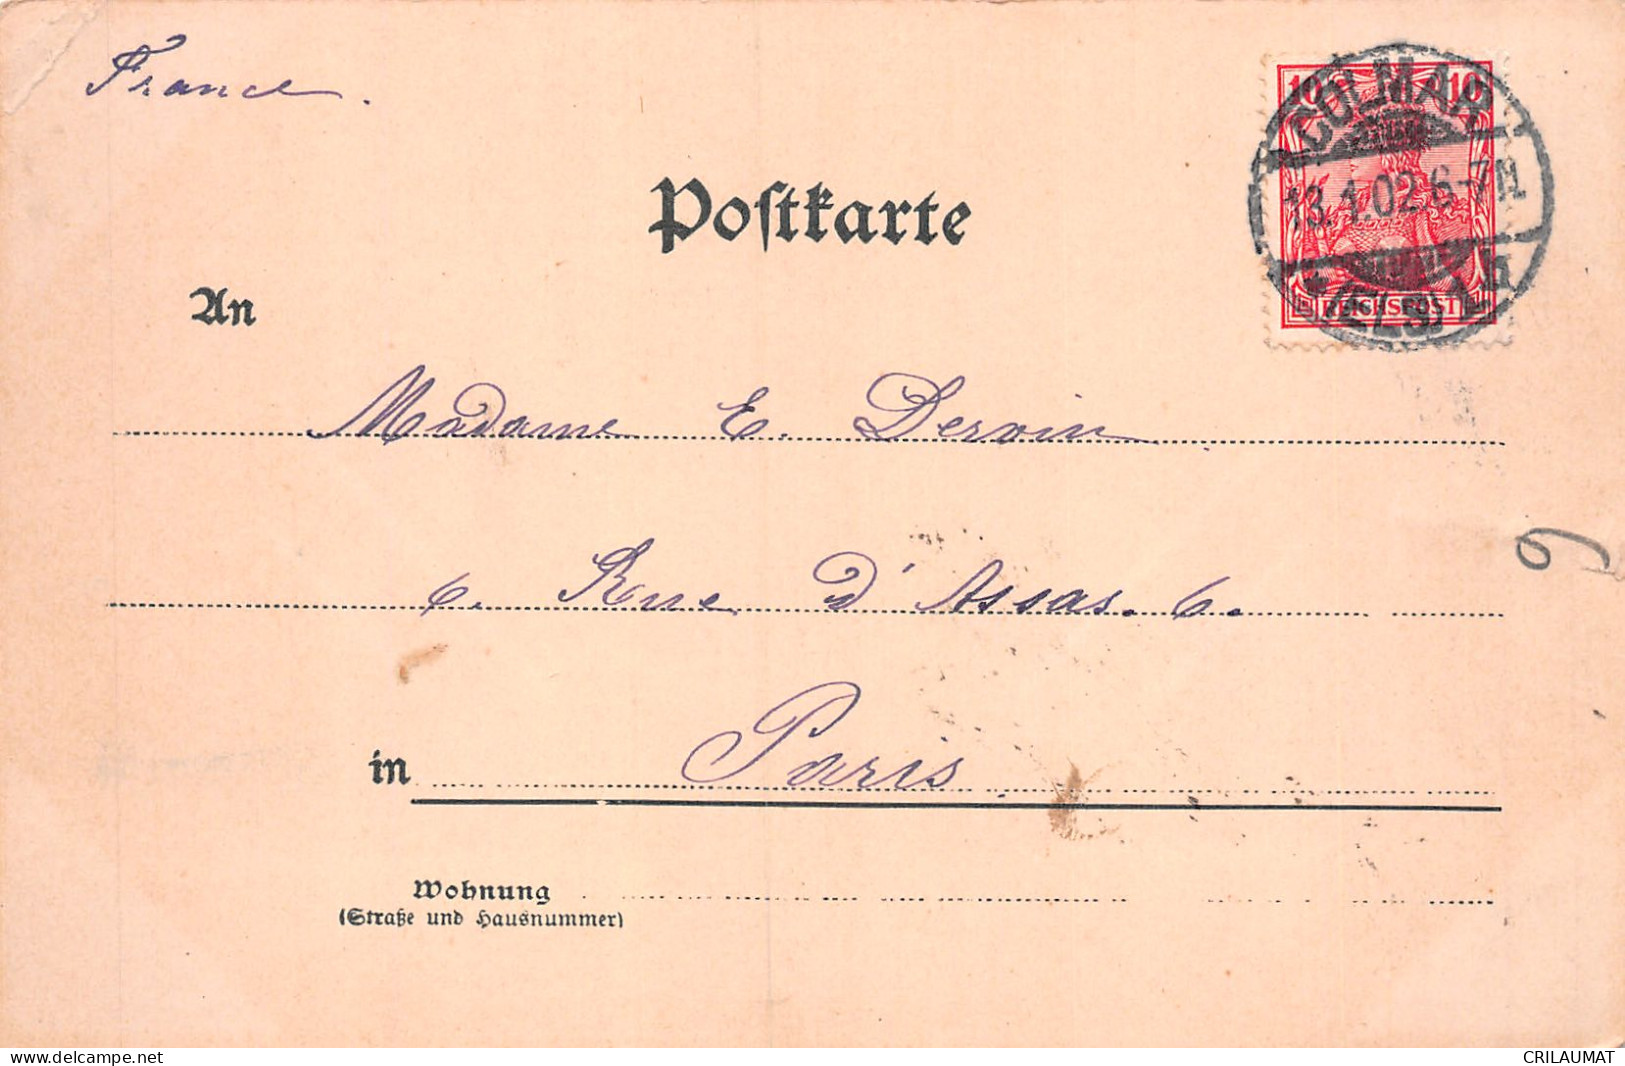 France.
10 10
COLMAR
13.1.02.6-7N
(ELS)
REICHSPOST
Postkarte
An
Madame E. Dervin
6. Rue d'Assas. 6.
9
in Paris
Wohnung
(Straße und Hausnummer)
delcampe.net
CRILAUMAT